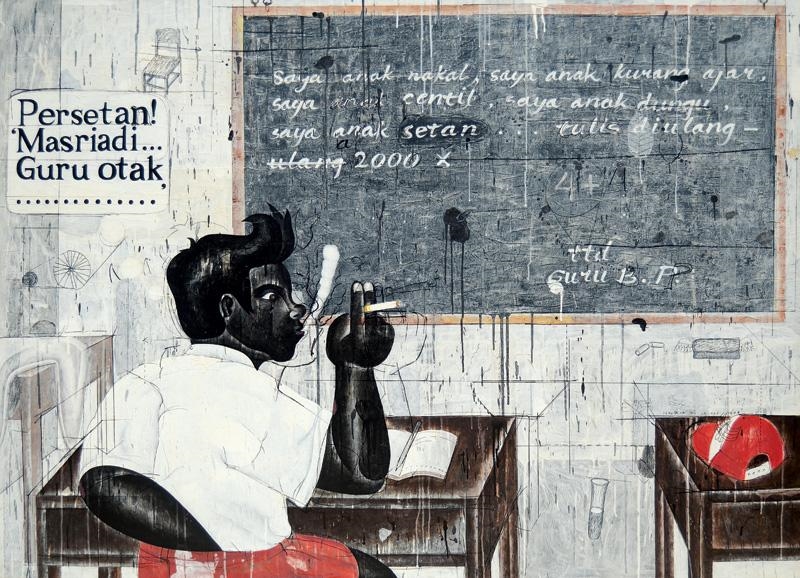 Persetan!
'Masriadi...
Guru otak,
..................
saya anak nakal, saya anak kurang ajar,
saya anak centil, saya anak dungu,
saya anak setan ... tulis diulang-
ulang 2000 X
4+1
ttd
Guru B.P.